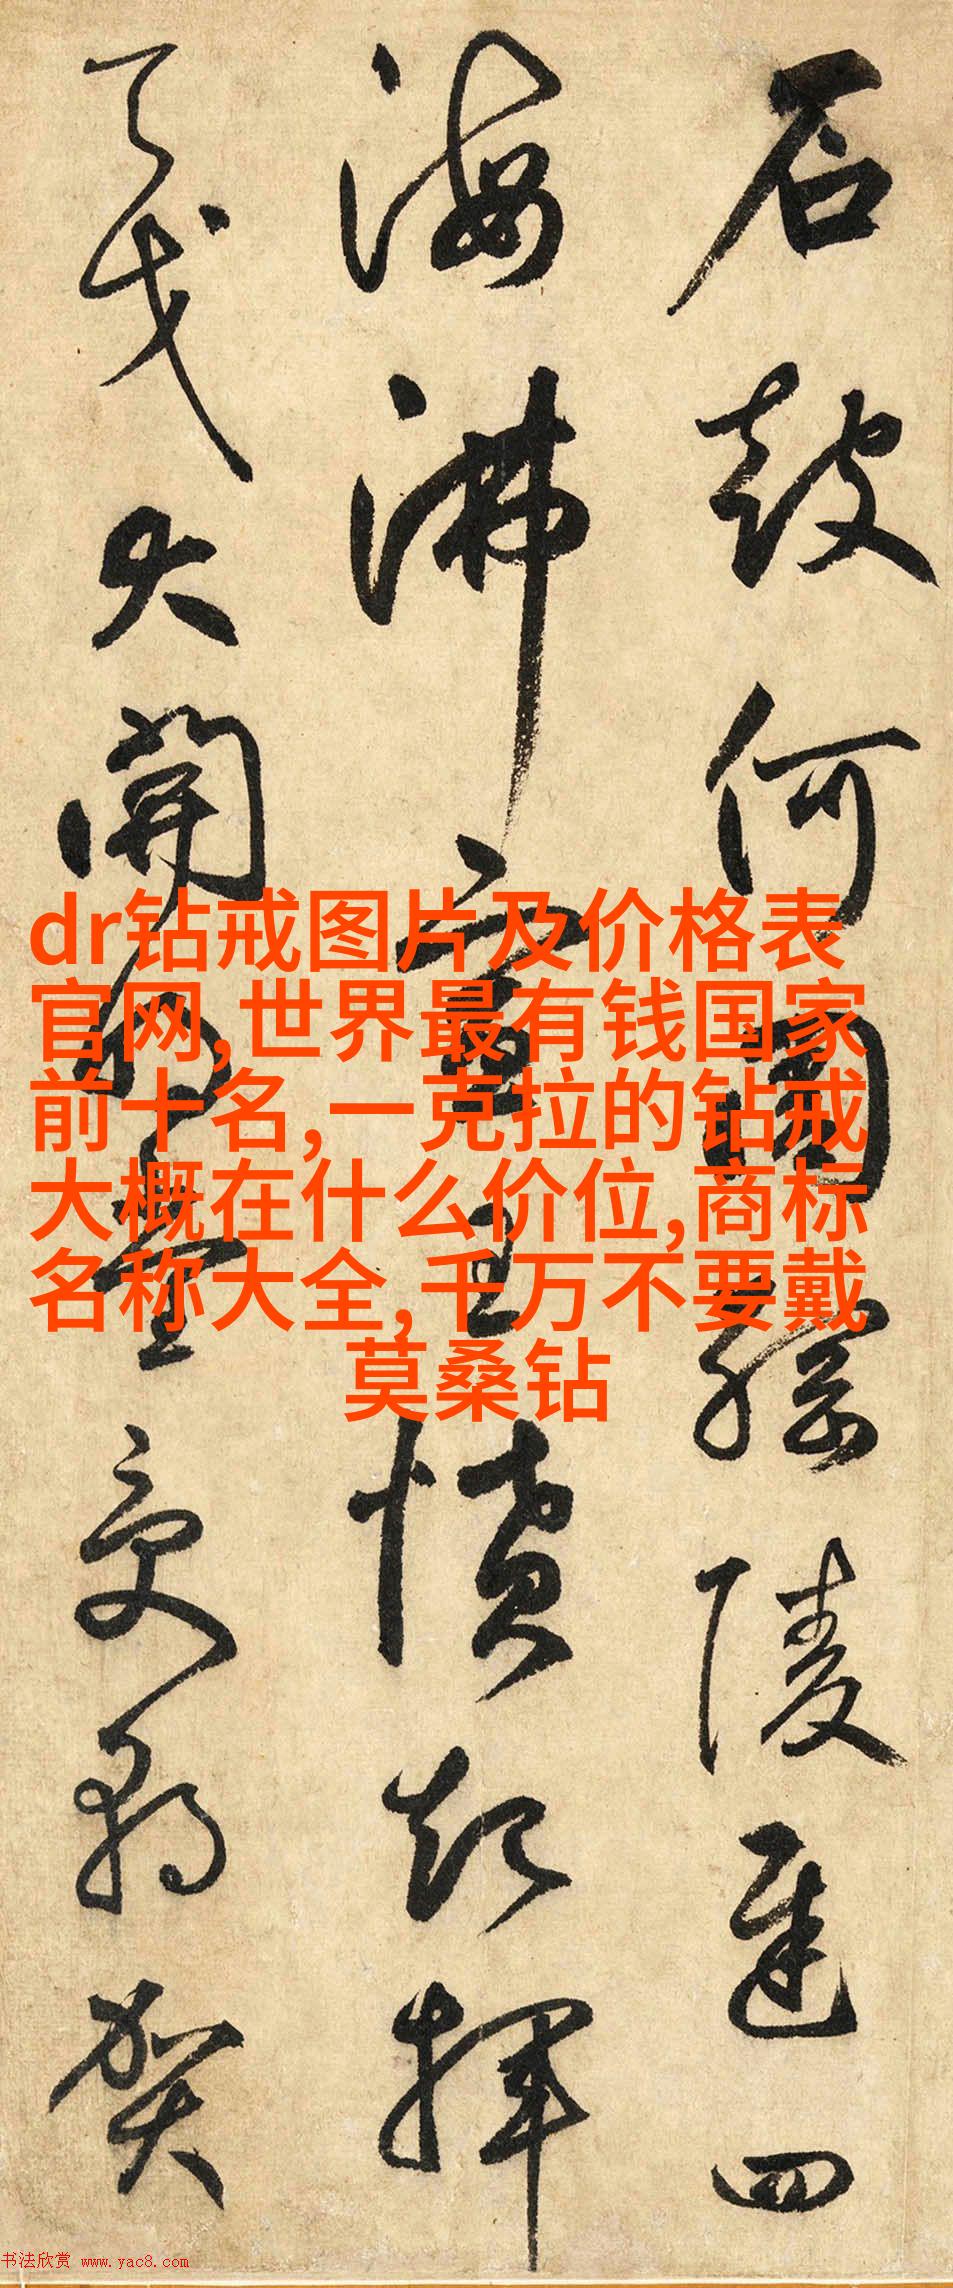 石鼓何周綱陵遲四
海沸宣王憤起揮
天戈大開明堂受朝賀
dr钻戒图片及价格表
官网,世界最有钱国家
前十名,一克拉的钻戒
大概在什么价位,商标
名称大全,千万不要戴
莫桑钻
书法欣赏 www.yac8.com